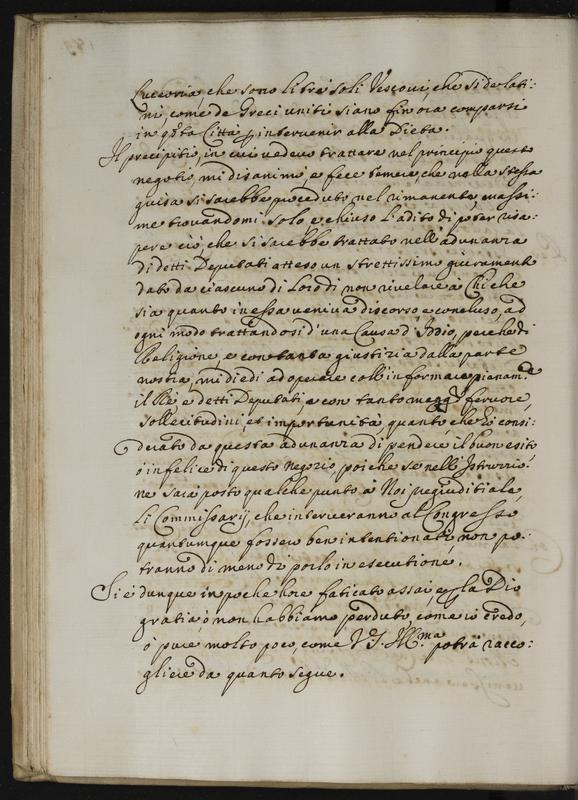 Luccoria, che sono li trè soli Vescovi, che si de lati:
ni, come de Greci uniti siano fin ora comparsi
in q̃sta Città p intervenir alla Dieta.
Il precipitio, in cui vedevo trattare nel principio questo
negotio, mi disanimò, e fece temere, che nella stessa
guisa si sarebbe proceduto nel rimanente, massi:
me trovandomi solo, e chiuso l'adito di poter risa:
pere ciò, che si sarebbe trattato nell'adunanza
di detti Deputati atteso un strettissimo giurament
dato da ciascuno di loro di non rivelare à Chi che
sia quanto in essa veniva discorso, e concluso, ad
ogni modo trattandosi d'una Causa d'Iddio, perche di
Religione, e con tanta giustizia dalla parte
nostra, mi diedi ad operare coll'informare pienam.te
il Rè, e detti Deputati, e con tanto magg.r fervore,
sollecitudini, et importunità quanto, che hò consi:
derato da questa adunanza dipendere il buon esito
ò infelice di questo Negozio, poiche se nell'Istruzzio:
ne sarà posto qualche punto à Noi pregiuditiale,
li Commissarij, che interveranno al Congresso
quantumque fossero ben intentionati, non po:
tranno di meno di porlo in esecutione.
Si è dunque in poche hore faticato assai, e p la Dio
gratia, ò non habbiamo perduto, come io credo,
ò pure molto poco, come V. S. Ill.ma potrà racco:
gliere da quanto segue.